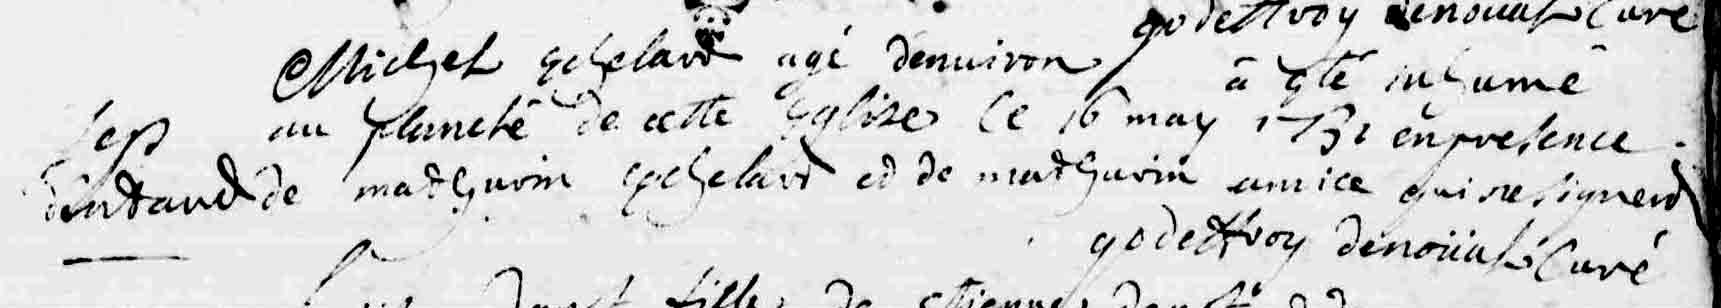 godeffroy denoual Curé
Michel Echelard agé denuiron à eté inhumé
au placitre de cette Eglise Le 16 may 1731 en presence
de mathurin Echelard et de mathurin amice qui ne signent
godeffroy denoual Curé
fille de etienne